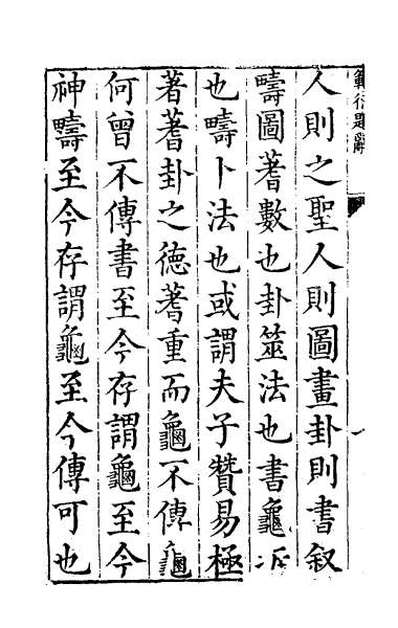 範衍題辭
一
人則之聖人則圖畫卦則書叙
疇圖蓍數也卦筮法也書龜
也疇卜法也或謂夫子贊易極
著蓍卦之德蓍重而龜不傳龜
何曾不傳書至今存謂龜至今
神疇至今存謂龜至今傳可也